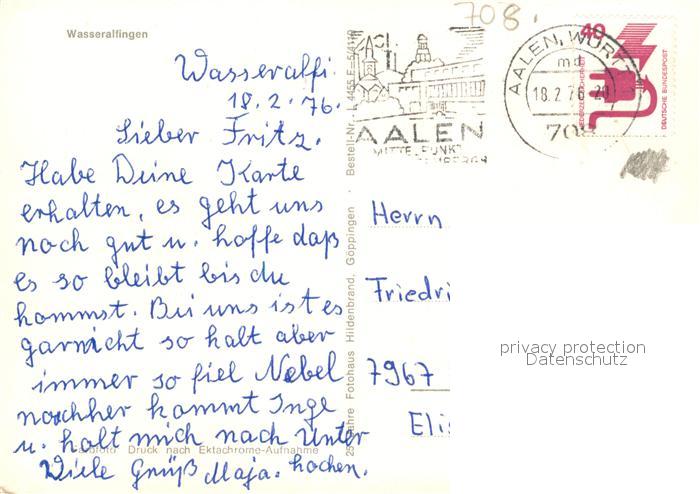 708.
Wasseralfingen
Wasseralfi
18.2.76.
Lieber Fritz.
Habe Deine Karte
erhalten, es geht uns
noch gut u. hoffe daß
es so bleibt bis du
kommst. Bei uns ist es
garnicht so halt aber
immer so fiel Nebel
nachher kommt Inge
u. holt mich nach Unter
Viele Grüß Maja. kochen.
Farbfoto Druck nach Ektachrome-Aufnahme
25 Jahre Fotohaus Hildenbrand, Göppingen · Bestell-Nr. L 4455 E
AALEN
MITTELPUNKT
AALEN, WÜRTT
md
18.2.76-20
708
40
JEDERZEIT SICHERHEIT
DEUTSCHE BUNDESPOST
Herrn
Friedri
7967
Eli
privacy protection
Datenschutz